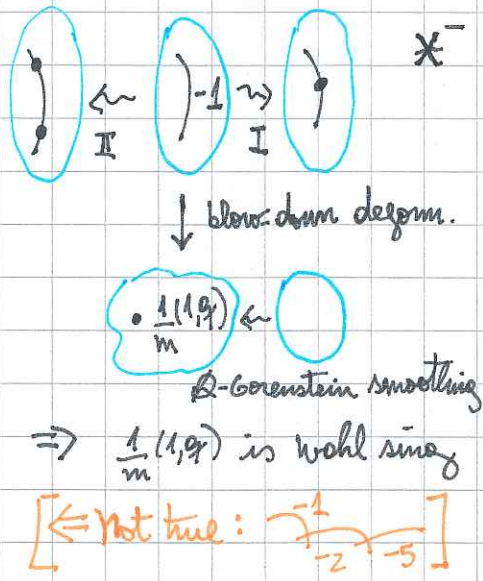 *⁻
-1
II
I
↓ blow-down deform.
• 1/m (1,q)
Q-Gorenstein smoothing
⇒ 1/m (1,q) is Wahl sing
[⇐ Not true: -1 -2 -5]